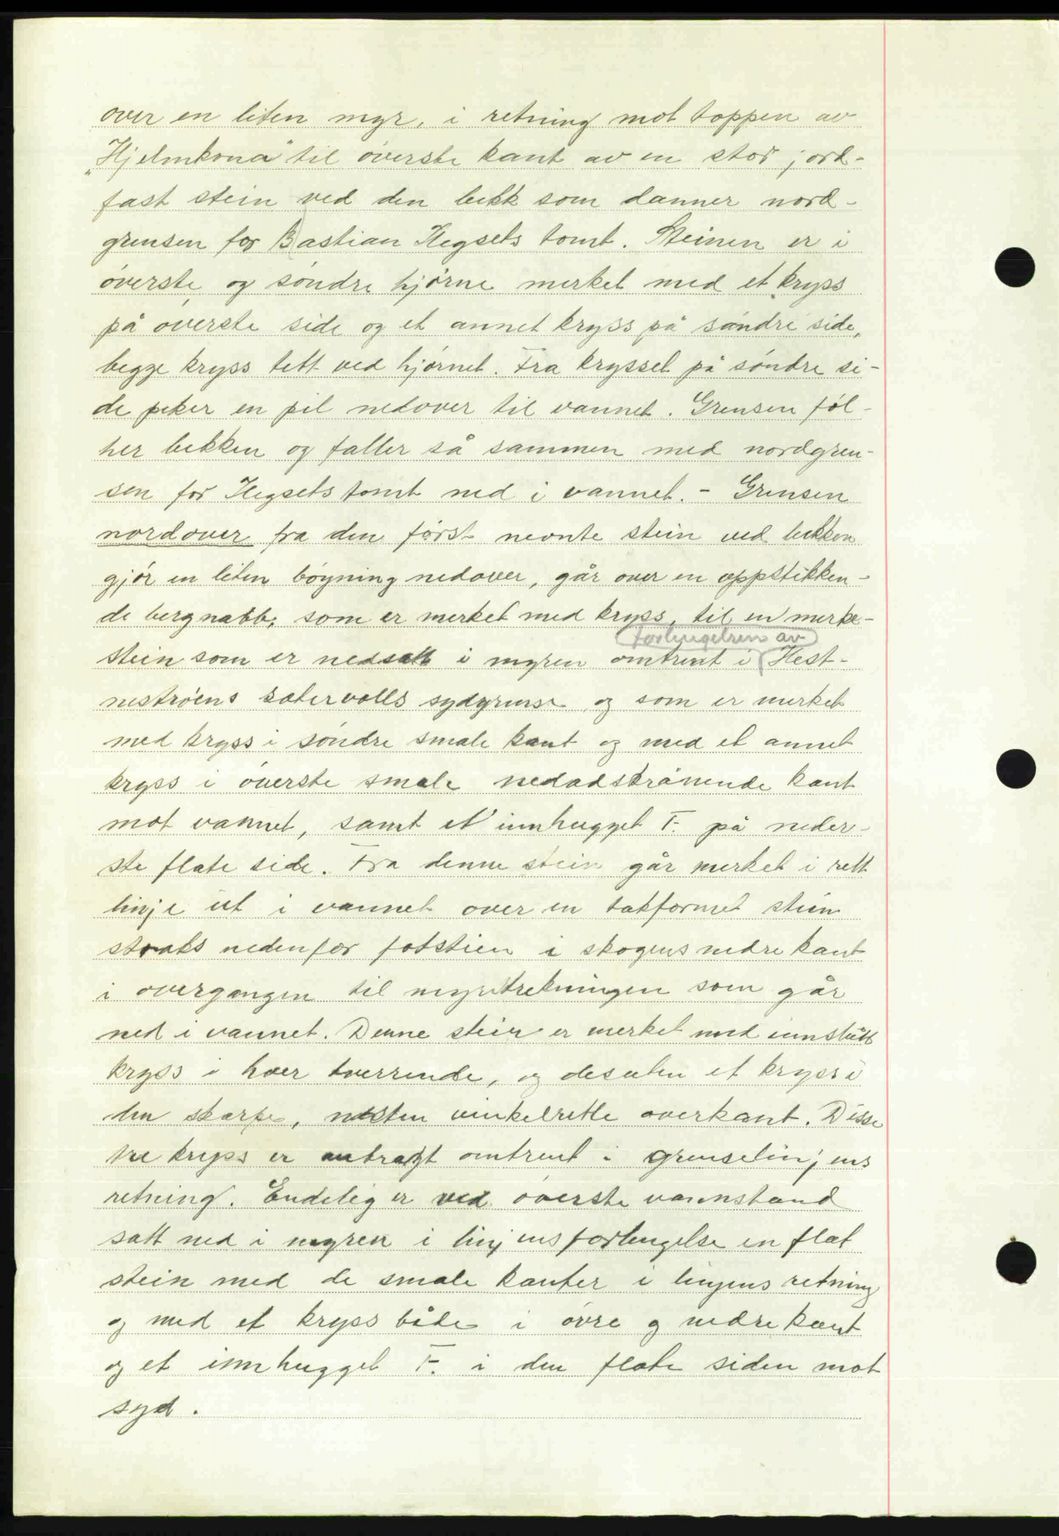 over en liten myr, i retning mot toppen av
"Hjelmkona" til øverste kant av en stor jord-
fast stein ved den bekk som danner nord-
grensen for Bastian Hegsets tomt. Steinen er i
øverste og søndre hjørne merket med et kryss
på øverste side og et annet kryss på søndre side,
begge kryss tett ved hjørnet. Fra krysset på søndre si-
de peker en pil nedover til vannet. Grensen føl-
her bekken og faller så sammen med nordgren-
sen for Hegsets tomt ned i vannet. - Grensen
nordover fra den først nevnte stein ved bekken
gjør en liten bøyning nedover, går over en oppstikken-
de bergnabb, som er merket med kryss, til en merke-
forlengelsen av
stein som er nedsatt i myren omtrent i Hest-
nestrøens sætervolls sydgrense og som er merket
med kryss i søndre smale kant og med et annet
kryss i øverste smale nedadskrånende kant
mot vannet, samt et innhugget F. på neder-
ste flate side. Fra denne stein går merket i rett
linje ut i vannet over en takformet stein
straks nedenfor fotstien i skogens nedre kant
i overgangen til myrstrekningen som går
ned i vannet. Denne stein er merket med innslått
kryss i hver tverrende, og desuten et kryss i
den skarpe, næsten vinkelrette overkant. Disse
tre kryss er anbragt omtrent i grenselinjens
retning. Endelig er ved øverste vannstand
satt ned i myren i linjens forlengelse en flat
stein med de smale kanter i linjens retning
og med et kryss både i øvre og nedre kant
og et innhugget F. i den flate siden mot
syd.